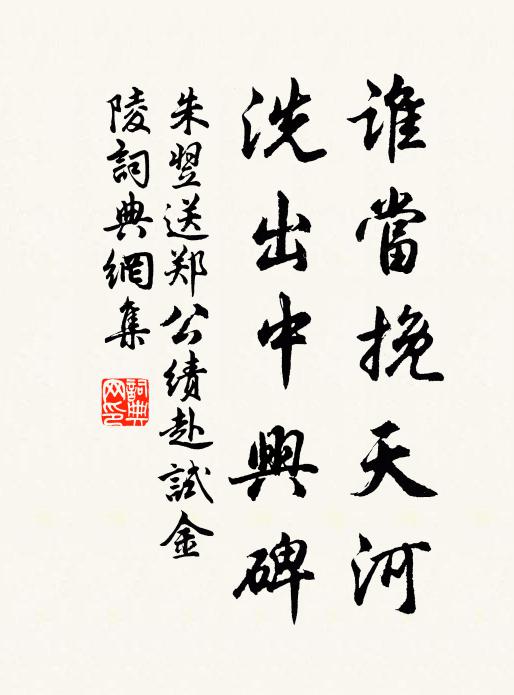 誰當挽天河
洗出中興碑
朱翌送郑公績赴試金
陵詞典網集
詞典网印